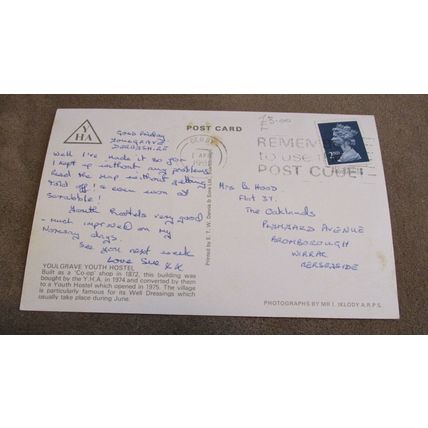 YHA
POST CARD
£3.00
F
Good Friday
YOULGRAVE
DERBYSHIRE
Well I've made it so far
I kept up without any problems
Read the map without getting
told off! & even won at
scrabble!
Youth Hostels very good
- much improved on my
day.
See you next week
Love Sue xx
YOULGRAVE YOUTH HOSTEL
Built as a 'Co-op' shop in 1872, this building was
bought by the Y.H.A. in 1974 and converted by them
to a Youth Hostel which opened in 1975. The village
is particularly famous for its Well Dressings which
usually take place during June.
DERBY
APR
REMEMBER
to use the
POST CODE!
2nd
Mrs B. HOOD
Flat 37.
The Oaklands
PLYMYARD AVENUE
BROMBOROUGH
WIRRAL
MERSEYSIDE
PHOTOGRAPHS BY MR I. IKLODY A.R.P.S.